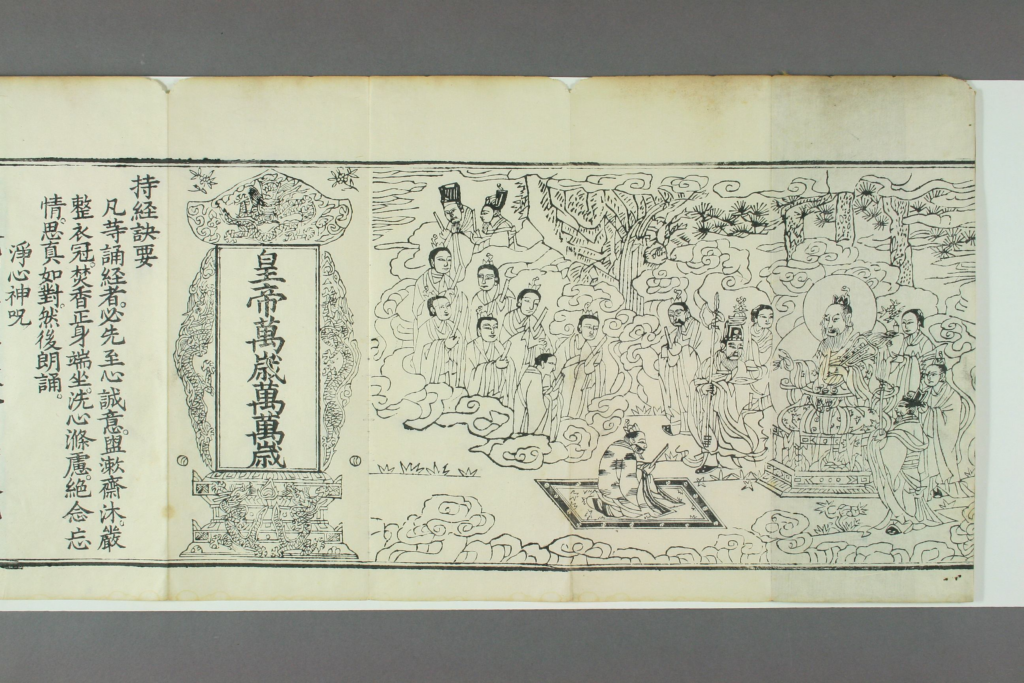 皇帝萬歲萬萬歲
持经訣要
凡荨誦經者。必先至心誠意。盥漱齋沐。嚴
整衣冠。焚香正身端坐。洗心滌慮。絕念忘
情。思真如對。然後朗誦。
淨心神呪